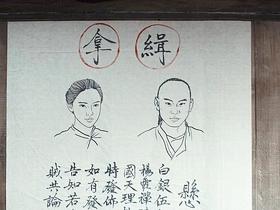 緝拿
懸
白銀伍
楊
國天理
時發佈
如有發
告知若
賊共論